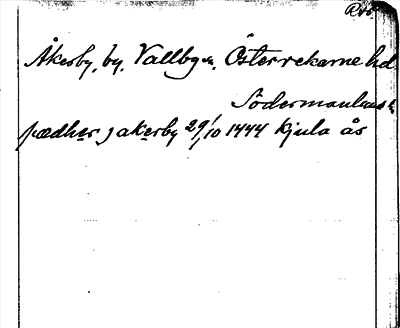 RAp.
Åkerby, by, Vallby sn. Österrekarne hd
Södermanlands l.
pædher j akerby 29/10 1444 Kjula ås